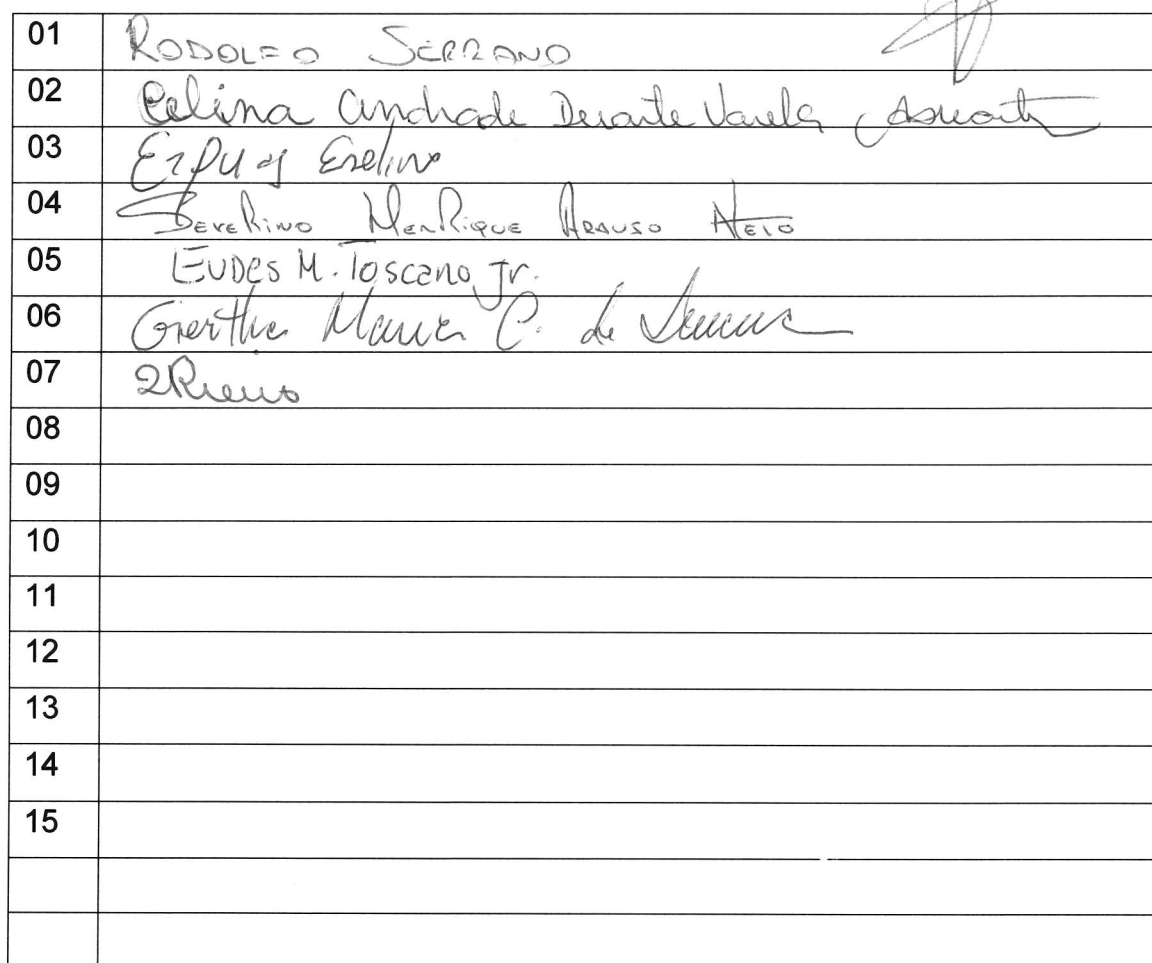 01 RODOLFO SERRANO
02 Celina Andrade Duarte Varela
03
04 Severino Henrique Araujo Neto
05 EUDES M. Toscano Jr.
06 Maria C. de
07
08
09
10
11
12
13
14
15